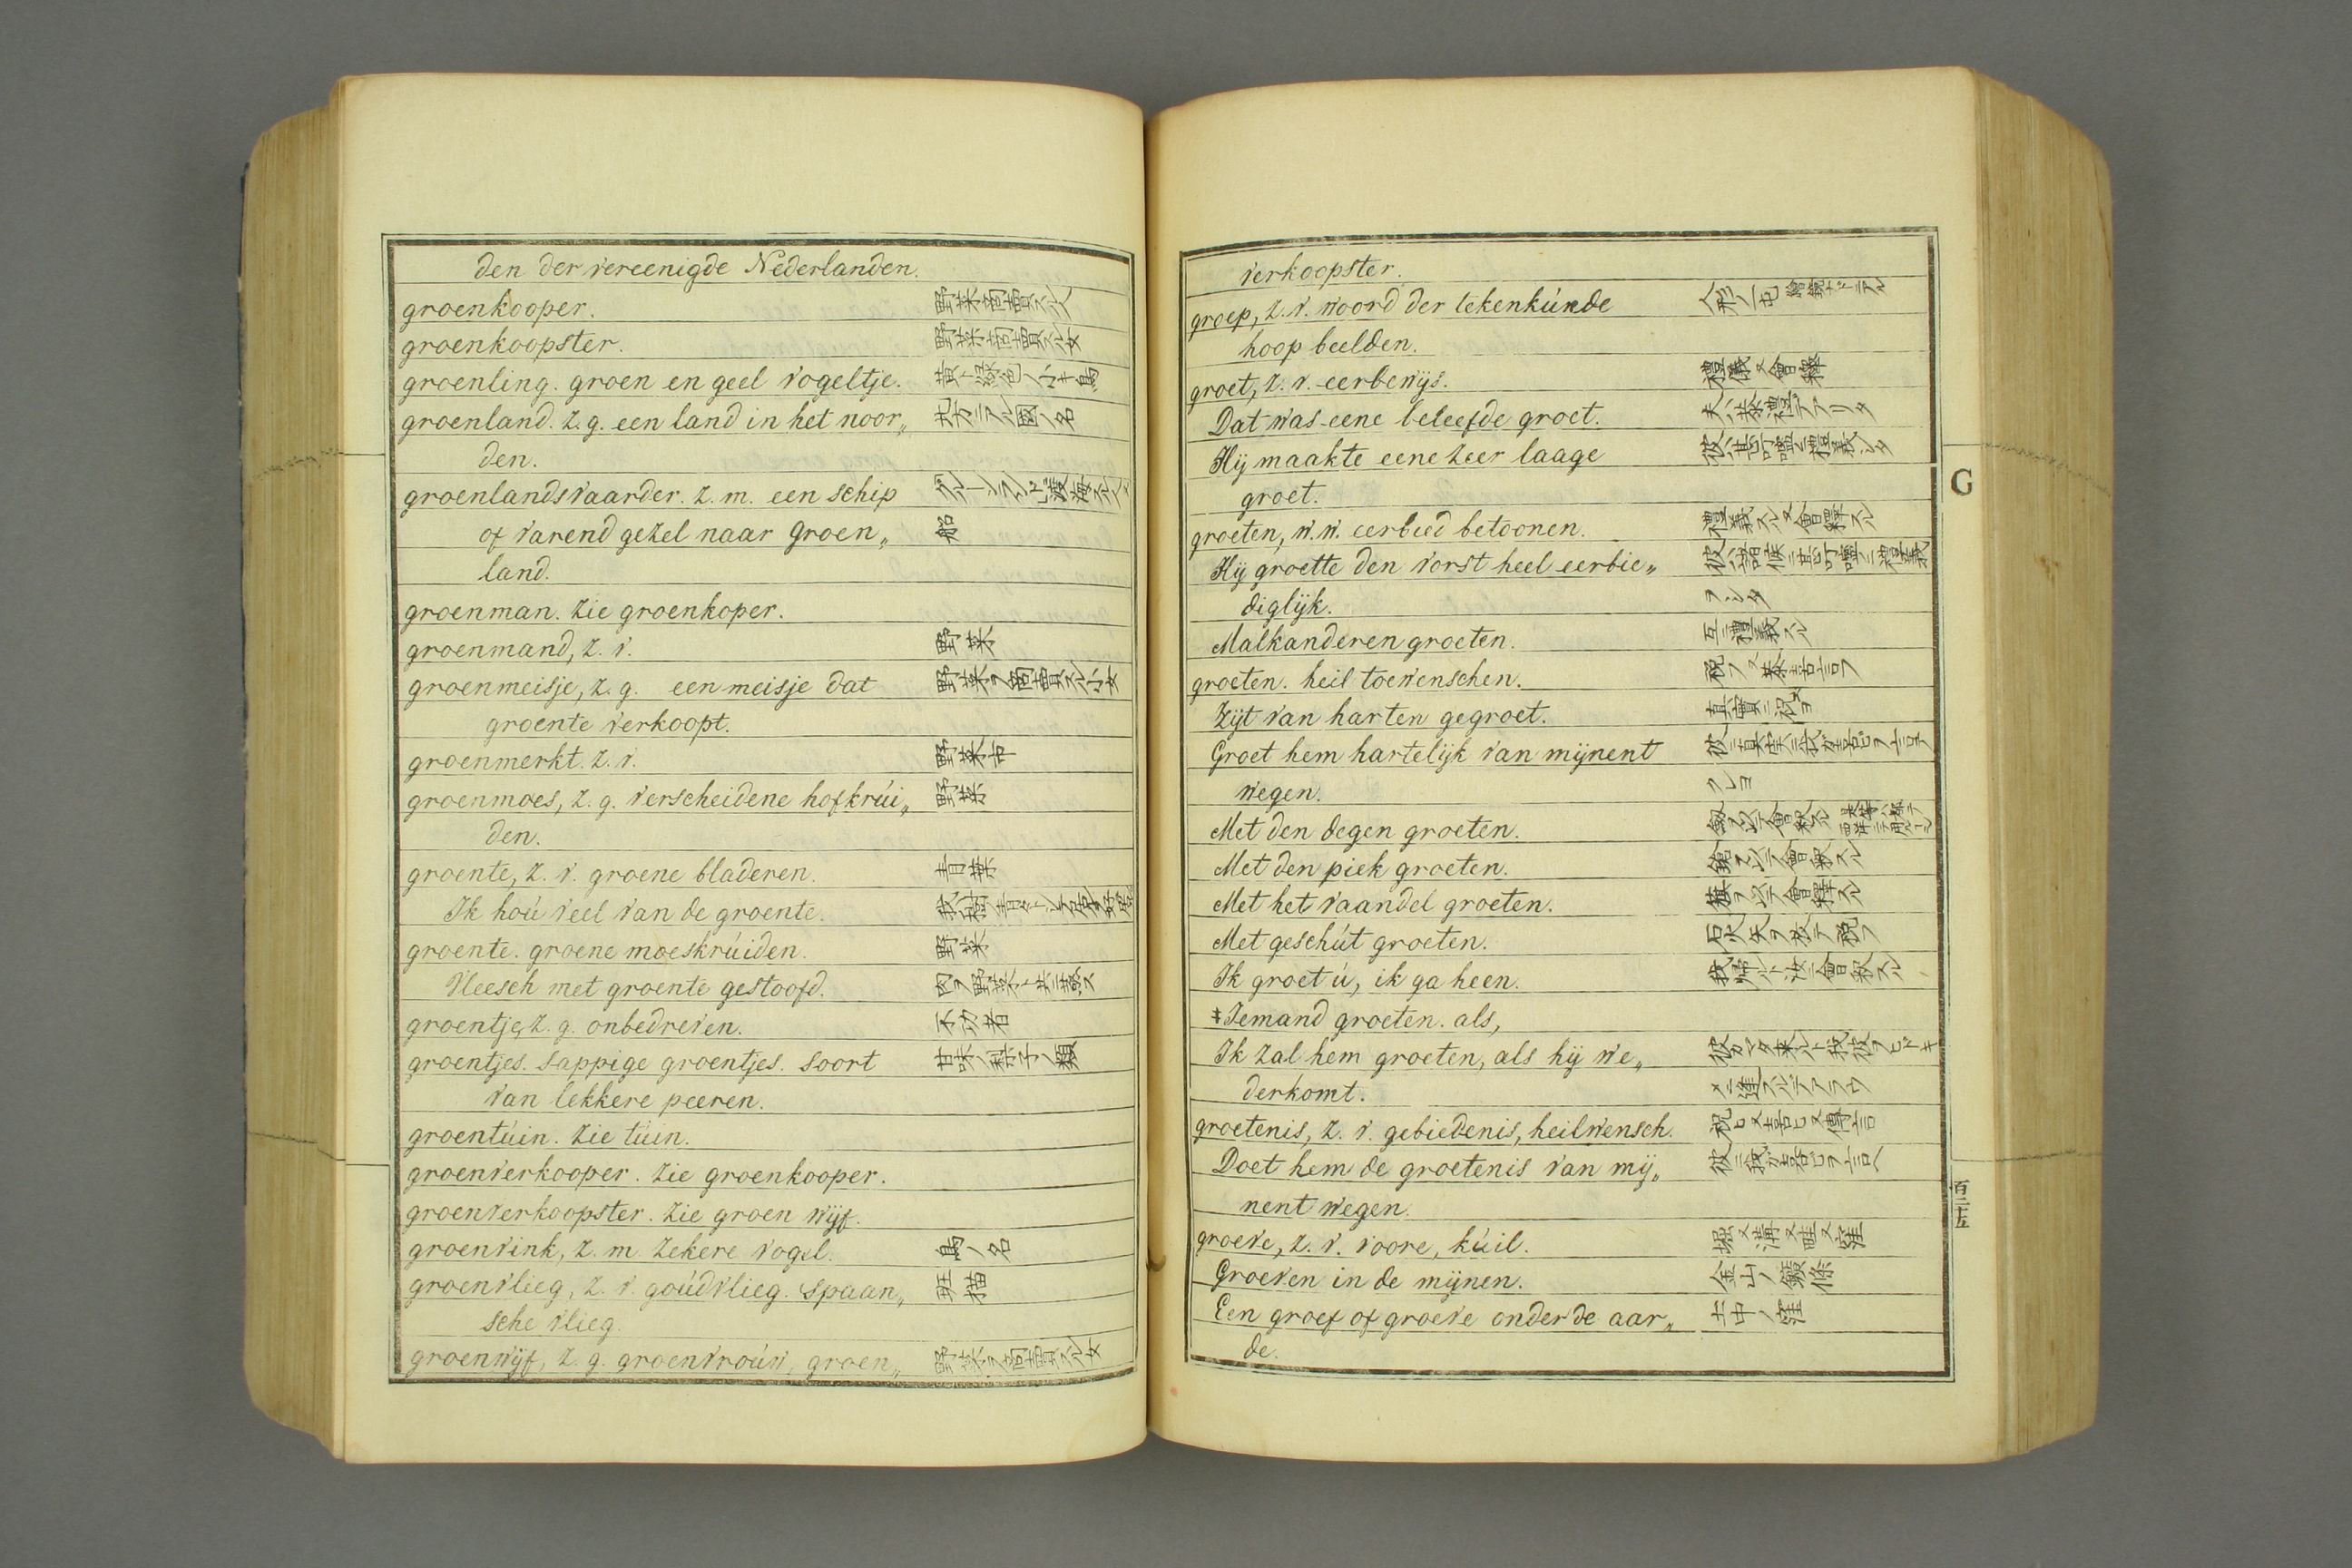 den der vereenigde Nederlanden.
groenkooper. 野菜商賣スル人
groenkoopster. 野菜商賣スル女
groenling. groen en geel vogeltje. 黄ト緑色ノ小キ鳥
groenland. z. g. een land in het noor„ 北方ニアル國ノ名
den.
groenlandsvaarder. z. m. een schip グルーンランドニ渡海スル
of varend gezel naar Groen„ 船
land.
groenman. zie groenkoper.
groenmand, z. v. 野菜
groenmeisje, z. g. een meisje dat 野菜ヲ商賣スル小女
groente verkoopt.
groenmerkt. z. v. 野菜市
groenmoes, z. g. verscheidene hofkrúi„ 野菜
den.
groente, z. v. groene bladeren. 青葉
Ik hoú veel van de groente.
groente. groene moeskrúiden. 野菜
Vleesch met groente gestoofd. 肉ヲ野菜ト共ニ
groentje, z. g. onbedreven. 不功者
groentjes. sappige groentjes. soort 甘味ノ梨子ノ類
van lekkere peeren.
groentúin. zie túin.
groenverkooper. zie groenkooper.
groenverkoopster. zie groen wijf.
groenvink, z. m. zekere vogel. 鳥ノ名
groenvlieg, z. v. goúdvlieg. spaan„ 班猫
sche vlieg.
groenwijf, z. g. groenvroúw, groen„ 野菜ヲ商賣スル女
verkoopster.
groep, z. v. woord der tekenkúnde
hoop beelden.
groet, z. v. eerbewijs. 禮儀又會釋
Dat was eene beleefde groet.
Hij maakte eene zeer laage 彼ハ甚叮嚀ニ禮義シタ
groet.
groeten, w. w. eerbied betoonen. 禮義スル又會釋スル
Hij groette den vorst heel eerbie„ 彼ハ諸侯ニ甚叮嚀ニ禮義
diglijk. ヲシタ
Malkanderen groeten. 互ニ禮義スル
groeten. heil toewenschen.
Zijt van harten gegroet. 真實ニ祝ヲ
Groet hem hartelijk van mijnent
wegen. クレヨ
Met den degen groeten.
Met den piek groeten. 鎗ヲ以テ會釈スル
Met het vaandel groeten. 旗ヲ以テ會釋スル
Met geschút groeten. 石火矢ヲ放テ祝フ
Ik groet ú, ik ga heen.
‡Iemand groeten. als,
Ik zal hem groeten, als hij we„
derkomt.
groetenis, z. v. gebiedenis, heilwensch.
Doet hem de groetenis van mij„
nent wegen.
groeve, z. v. voore, kúil. 堀又溝又畦又窪
Groeven in de mijnen. 金山ノ鑛條
Een groef of groeve onder de aar„ 土中ノ窪
de.
G
百二十五